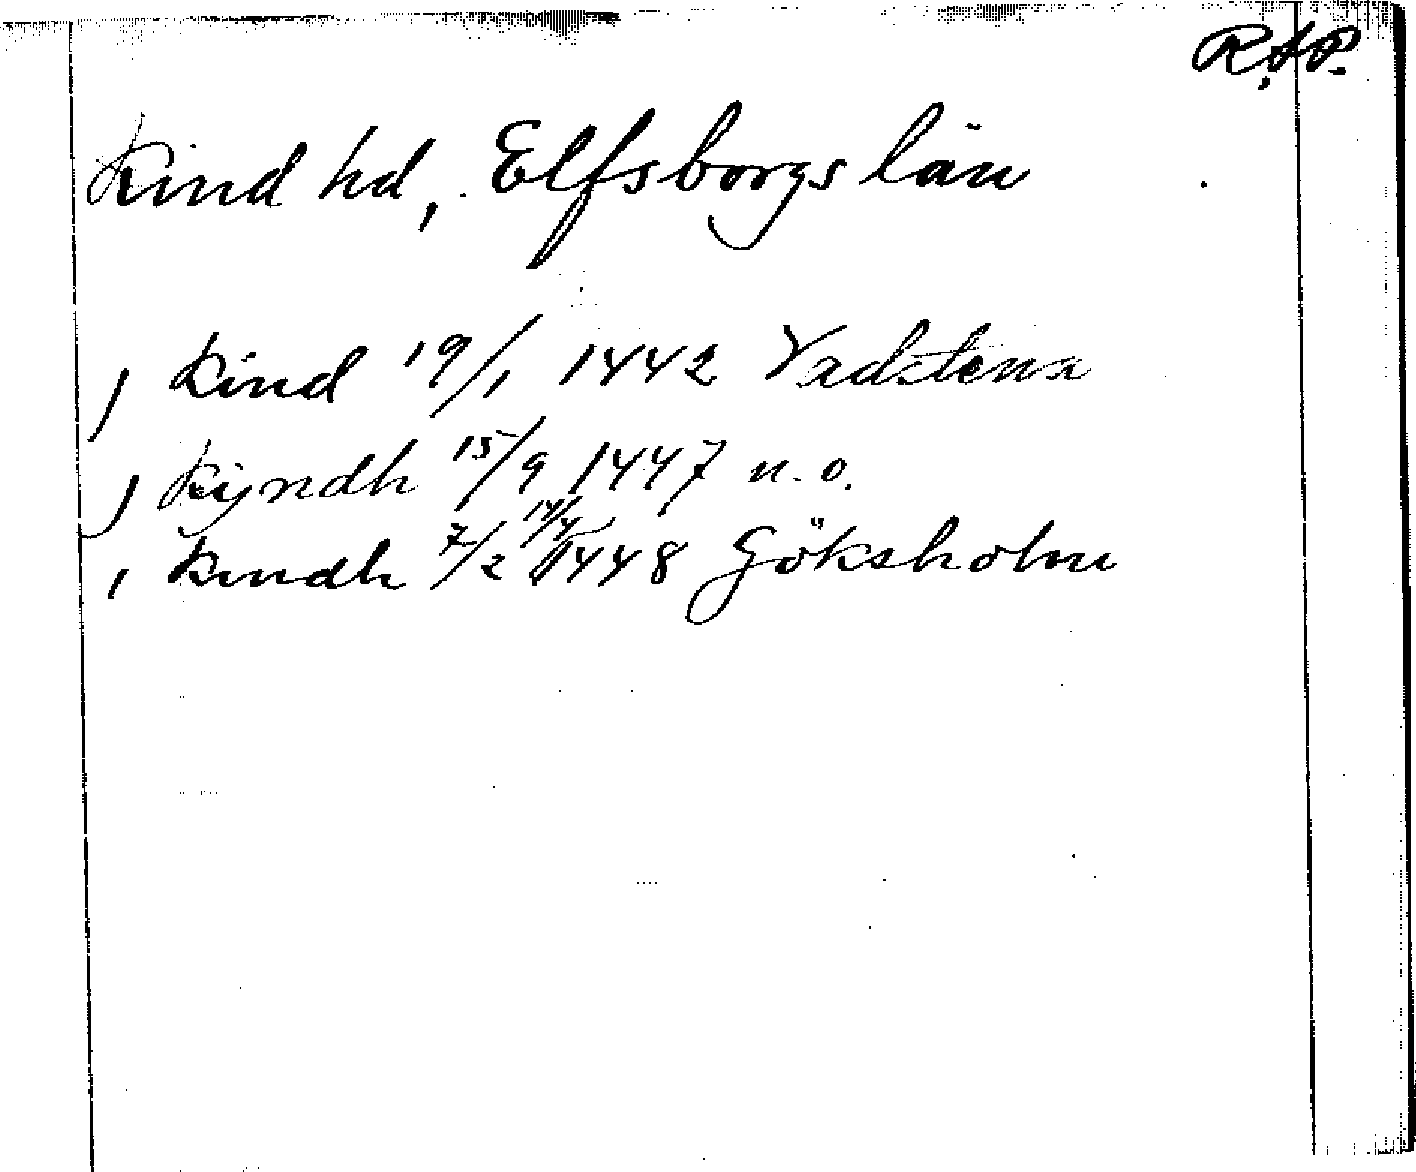 R.A.P.
Kind hd, Elfsborgs län
, Kind 19/1 1442 Vadstena
, Kijndh 15/9 1447 n. o.
14/4
, Kindh 7/2 1448 Göksholm